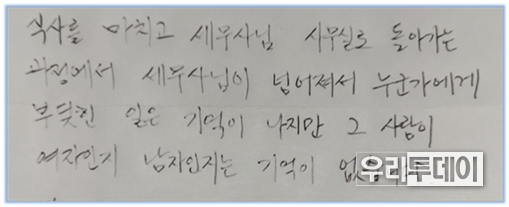 식사를 마치고 세무사님 사무실로 돌아가는
과정에서 세무사님이 넘어져서 누군가에게
부딪힌 일은 기억이 나지만 그 사람이
여자인지 남자인지는 기억이 없습니다
우리투데이